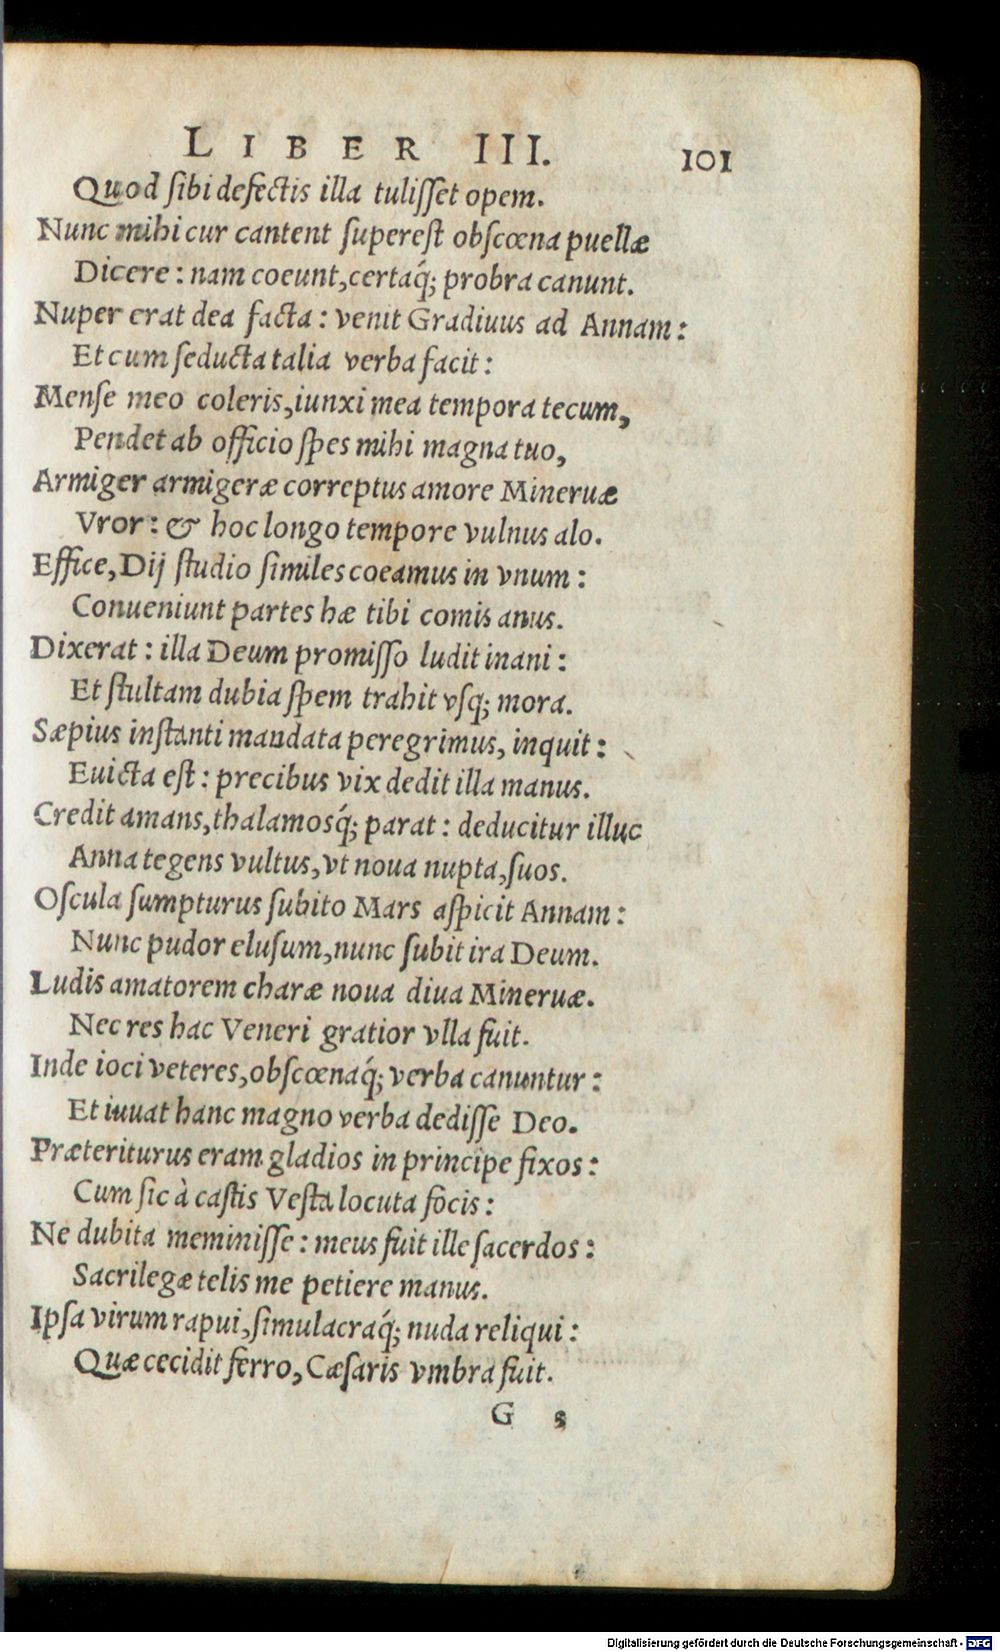 LIBER III. 101
Quod ſibi defectis illa tuliſſet opem.
Nunc mihi cur cantent ſupereſt obſcœna puellæ
Dicere: nam coeunt, certaq́; probra canunt.
Nuper erat dea facta: venit Gradiuus ad Annam:
Et cum ſeducta talia verba facit:
Menſe meo coleris, iunxi mea tempora tecum,
Pendet ab officio ſpes mihi magna tuo,
Armiger armigeræ correptus amore Mineruæ
Vror: & hoc longo tempore vulnus alo.
Effice, Dij ſtudio ſimiles coeamus in vnum:
Conueniunt partes hæ tibi comis anus.
Dixerat: illa Deum promiſſo ludit inani:
Et ſtultam dubia ſpem trahit vſq; mora.
Sæpius inſtanti mandata peregrimus, inquit:
Euicta eſt: precibus vix dedit illa manus.
Credit amans, thalamosq́; parat: deducitur illuc
Anna tegens vultus, vt noua nupta, ſuos.
Oſcula ſumpturus ſubito Mars aſpicit Annam:
Nunc pudor eluſum, nunc ſubit ira Deum.
Ludis amatorem charæ noua diua Mineruæ.
Nec res hac Veneri gratior vlla fuit.
Inde ioci veteres, obſcœnaq́; verba canuntur:
Et iuuat hanc magno verba dediſſe Deo.
Præteriturus eram gladios in principe fixos:
Cum ſic à caſtis Veſta locuta focis:
Ne dubita meminiſſe: meus fuit ille ſacerdos:
Sacrilegæ telis me petiere manus.
Ipſa virum rapui, ſimulacraq́; nuda reliqui:
Quæ cecidit ferro, Cæſaris vmbra fuit.
G s
Digitalisierung gefördert durch die Deutsche Forschungsgemeinschaft - DFG